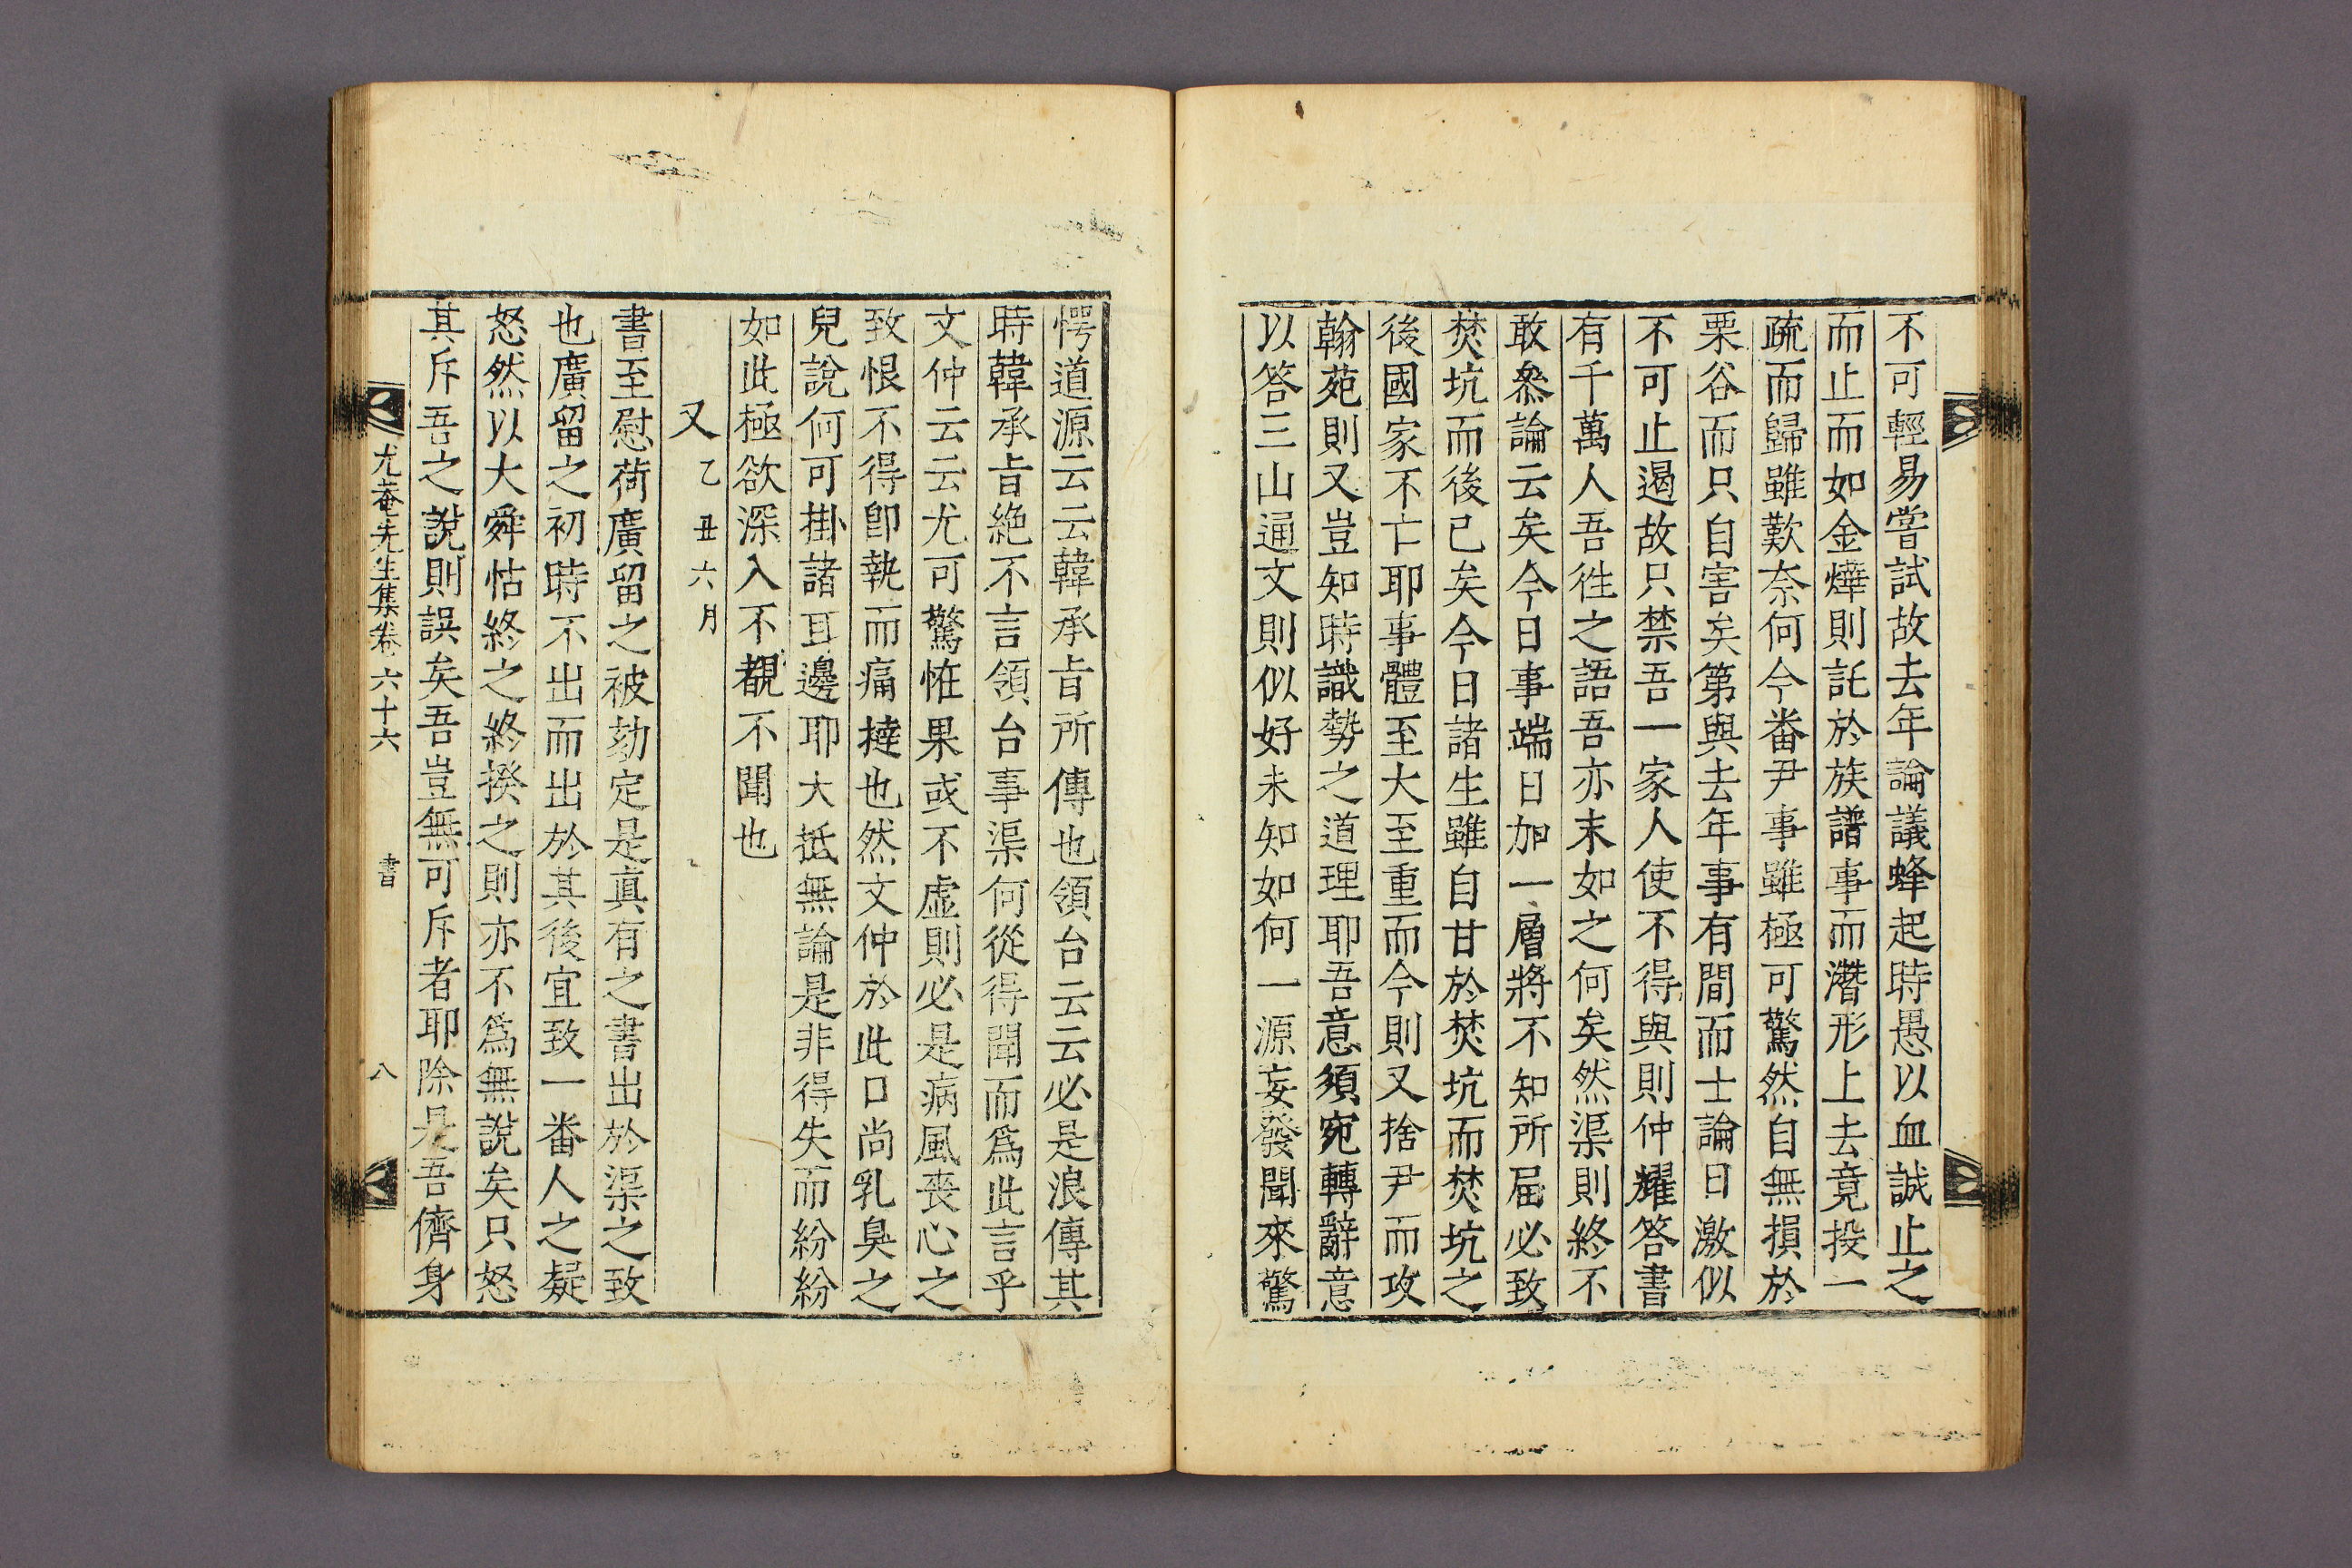 不可輕易嘗試故去年論議蜂起時愚以血誠止之
而止而如金㷸則託於族譜事而潛形上去竟投一
疏而歸雖歎奈何今番尹事雖極可驚然自無損於
栗谷而只自害矣第與去年事有間而士論日激似
不可止遏故只禁吾一家人使不得與則仲耀答書
有千萬人吾徃之語吾亦末如之何矣然渠則終不
敢叅論云矣今日事端日加一層將不知所届必致
焚坑而後已矣今日諸生雖自甘於焚坑而焚坑之
後國家不亡耶事體至大至重而今則又捨尹而攻
翰苑則又豈知時識勢之道理耶吾意須宛轉辭意
以答三山通文則似好未知如何一源妄發聞來驚
愕道源云云韓承㫖所傳也領台云云必是浪傳其
時韓承㫖絶不言領台事渠何從得聞而爲此言乎
文仲云云尤可驚恠果或不虛則必是病風喪心之
致恨不得卽執而痛撻也然文仲於此口尚乳臭之
兒說何可掛諸耳邊耶大抵無論是非得失而紛紛
如此極欲深入不覩不聞也
又 乙丑六月
書至慰荷廣留之被劾定是眞有之書出於渠之致
也廣留之初時不出而出於其後宜致一番人之疑
怒然以大舜怙終之終揆之則亦不爲無說矣只怒
其斥吾之說則誤矣吾豈無可斥者耶除是吾儕身
尤菴先生集卷六十六 書 八